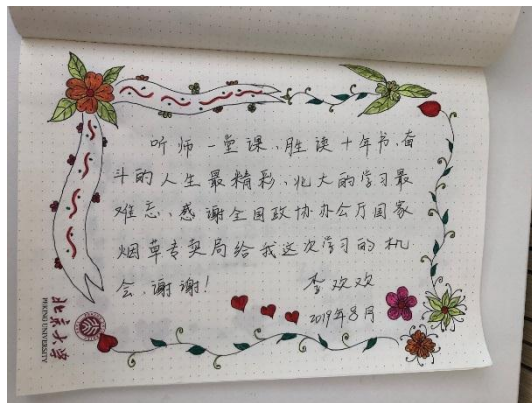 听师一堂课、胜读十年书、奋
斗的人生最精彩、北大的学习最
难忘、感谢全国政协办公厅国家
烟草专卖局给我这次学习的机
会、谢谢！ 李欢欢
2019年8月
北京大学
PEKING UNIVERSITY